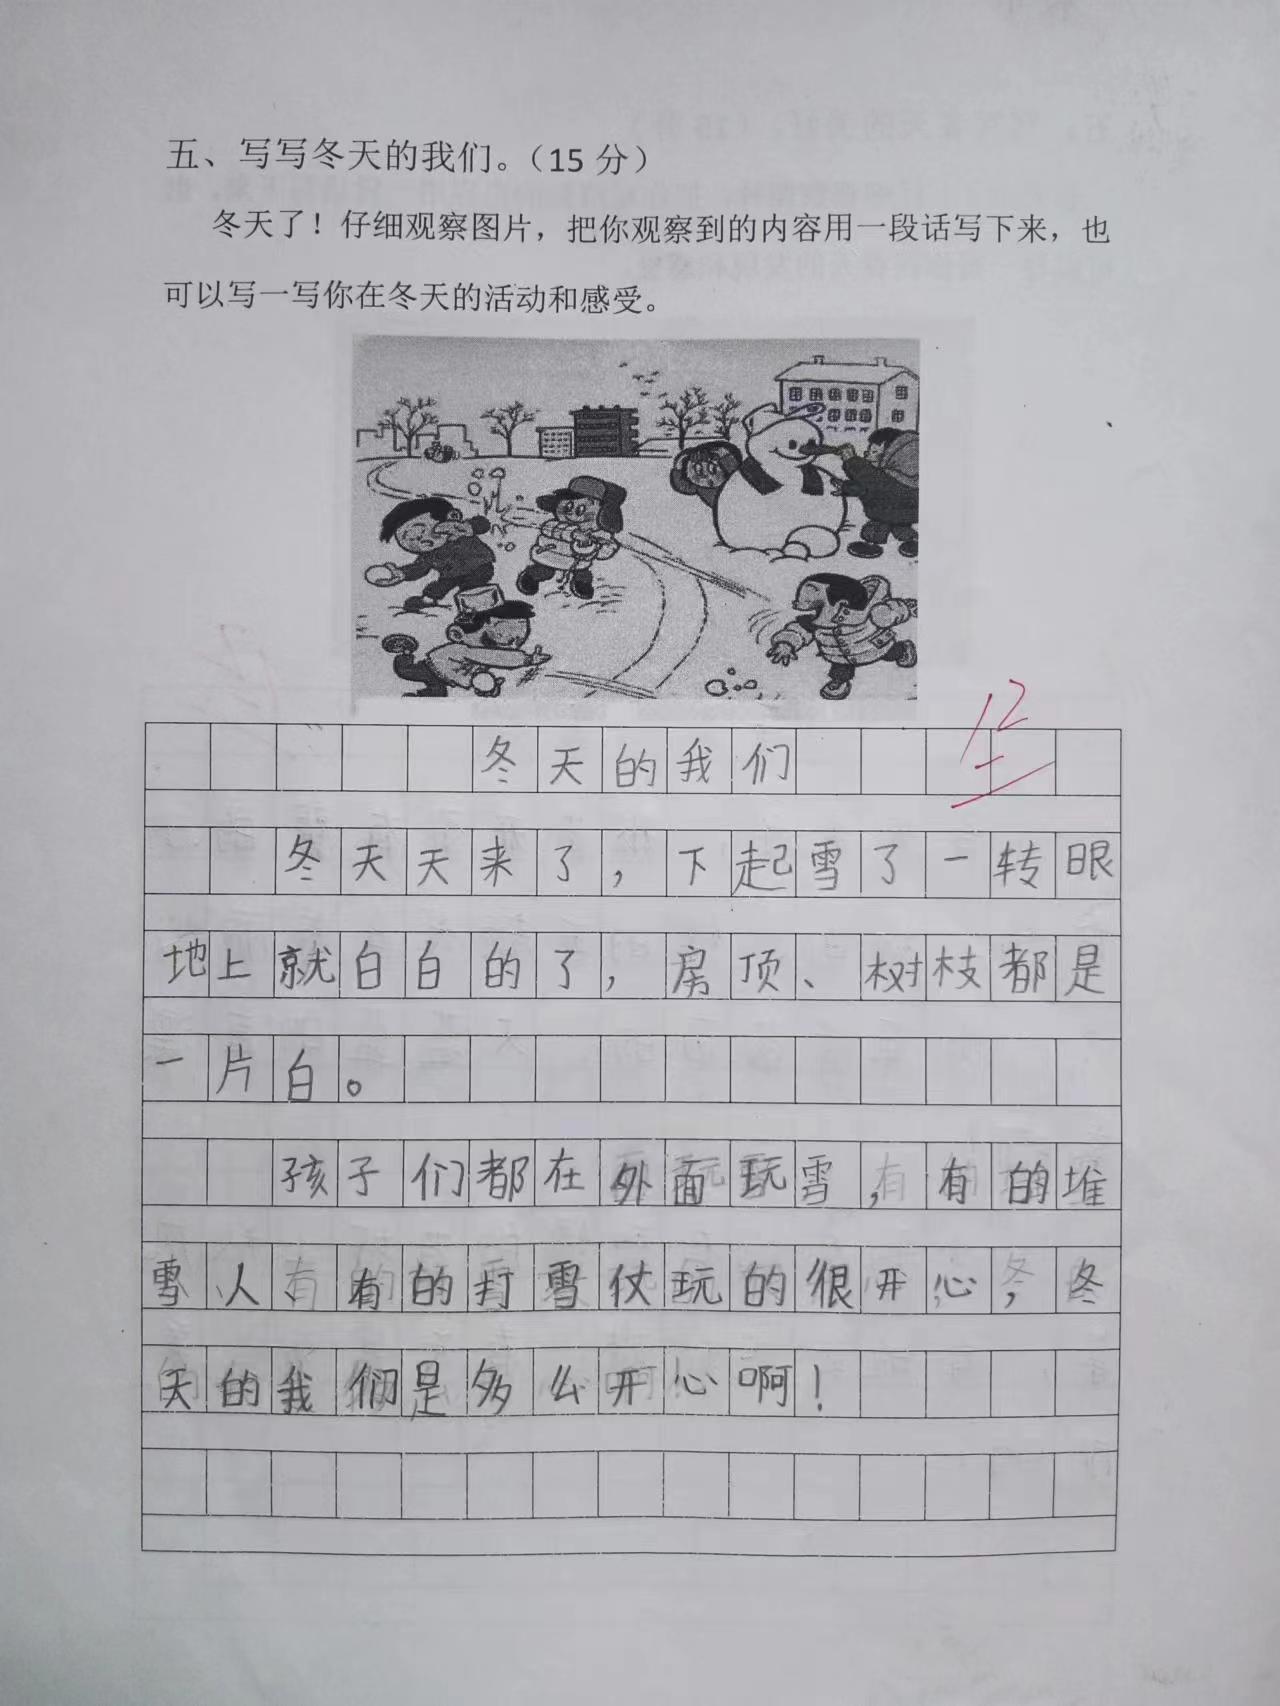 五、写写冬天的我们。（15 分）
冬天了！仔细观察图片，把你观察到的内容用一段话写下来，也
可以写一写你在冬天的活动和感受。
12
冬天的我们
冬天天来了，下起雪了一转眼
地上就白白的了，房顶、树枝都是
一片白。
孩子们都在外面玩雪，有的堆
雪人有的打雪仗玩的很开心，冬
天的我们是多么开心啊！